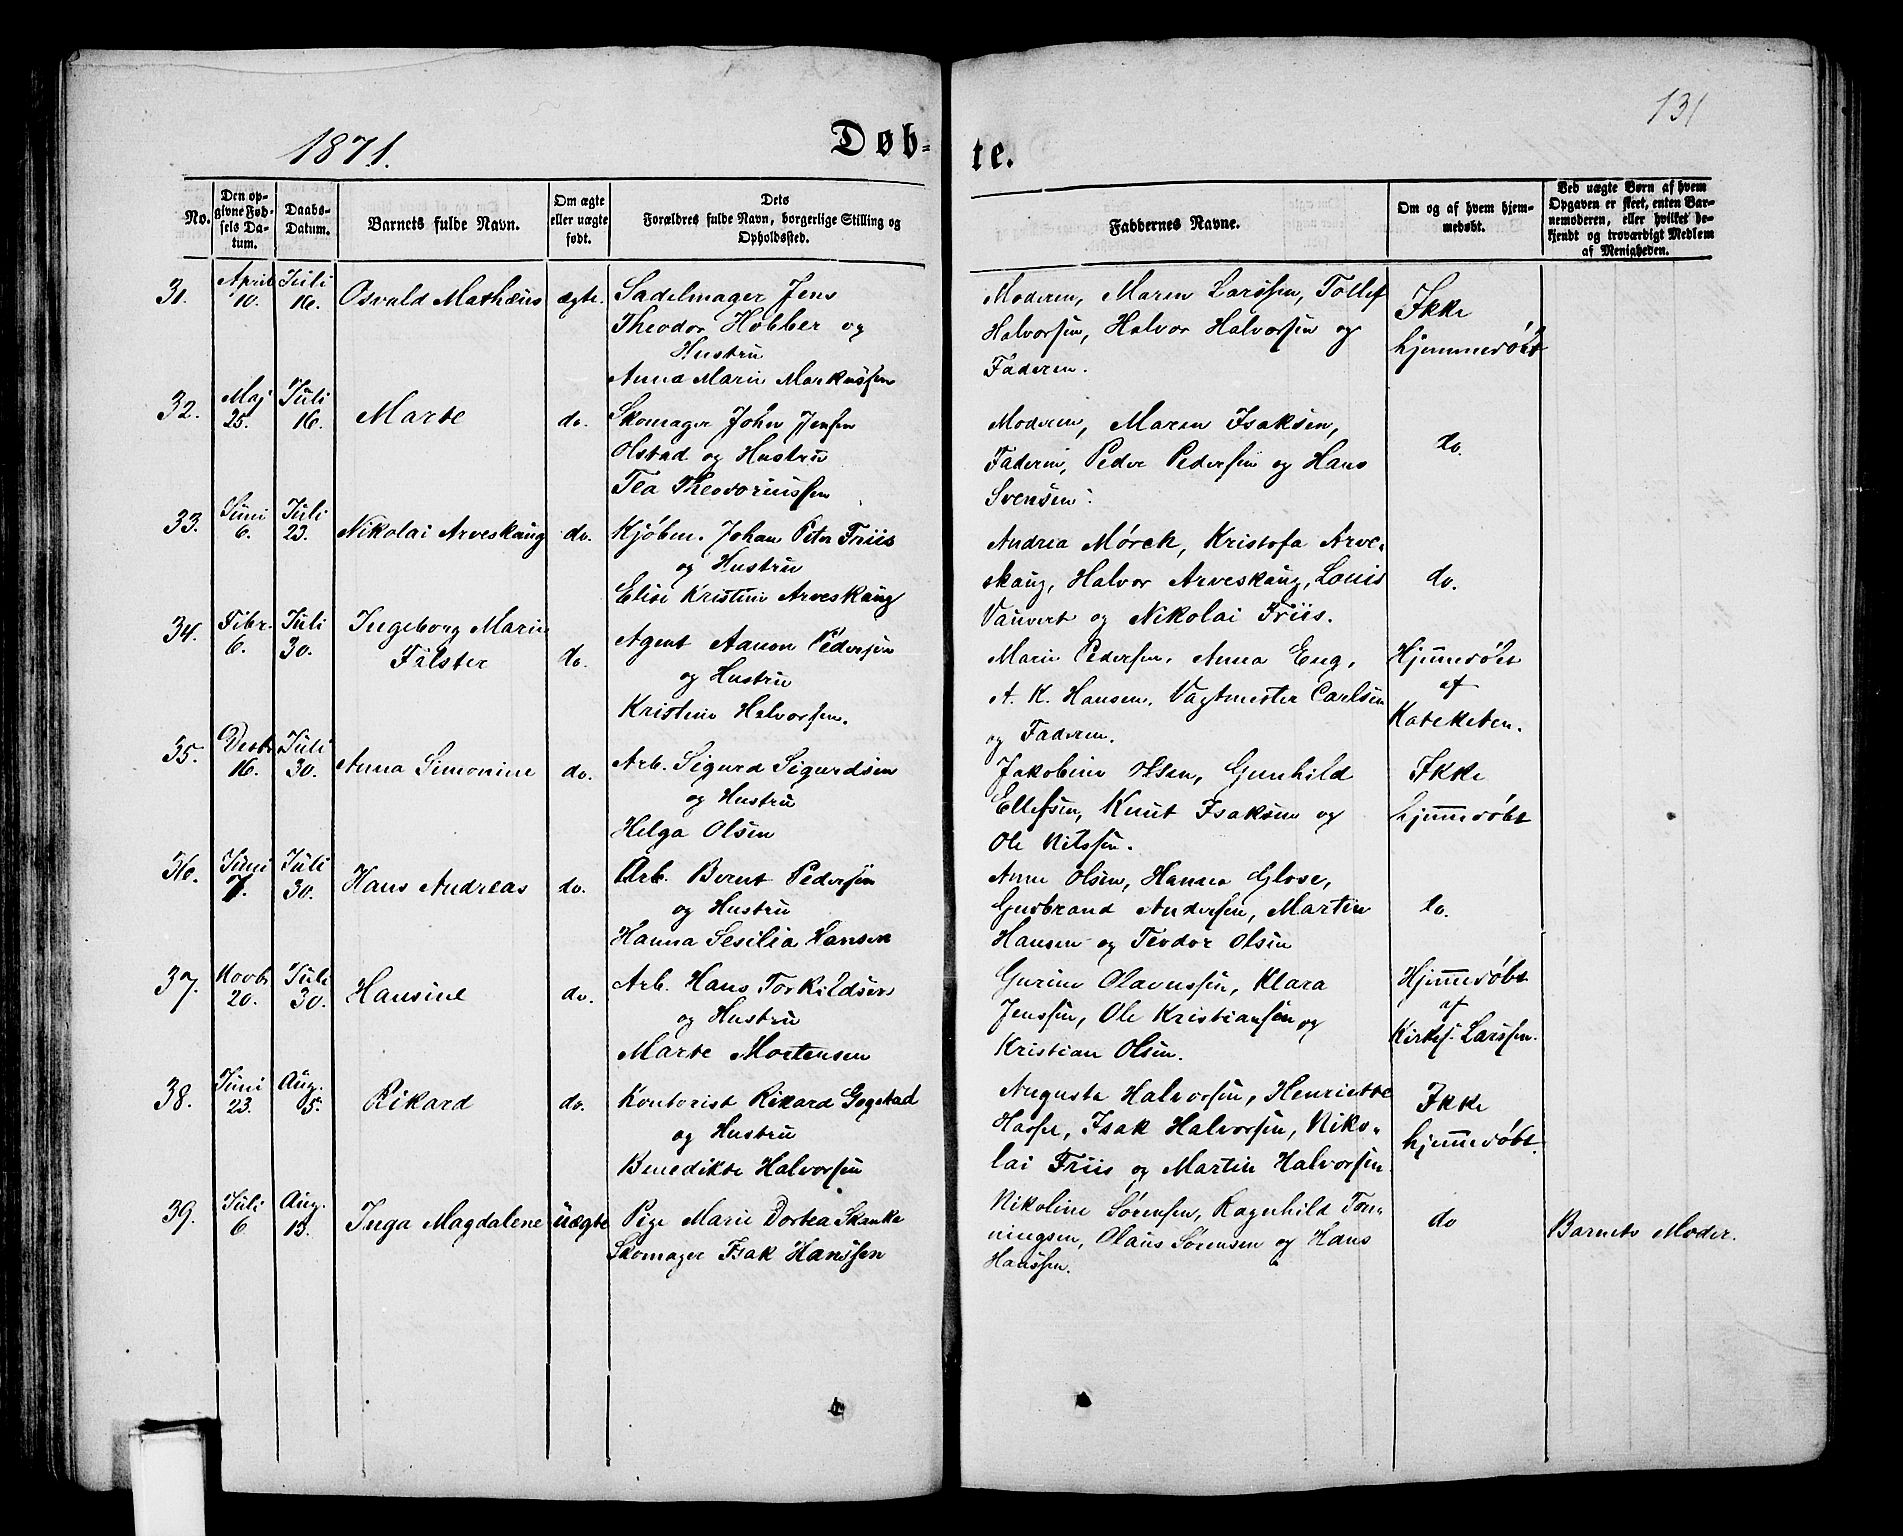 131
1871.
Døb-
te.
No.
Den op-
givne Fød-
sels Da-
tum.
Daabs-
Datum.
Barnets fulde Navn.
Om ægte
eller uægte
født.
Dets
Forældres fulde Navn, borgerlige Stilling og
Opholdssted.
Faddernes Navne.
Om og af hvem hjem-
medøbt.
Ved uægte Børn af hvem
Opgaven er skeet, enten Bar-
nemoderen, eller hvilket be-
kjendt og troværdigt Medlem
af Menigheden.
31.
April
10.
Juli
16.
Osvald Mathæus
ægte.
Sadelmager Jens
Theodor Höbber og
Hustru
Anna Marie Markussen
Moderen, Maren Larssen, Tollef
Halvorsen, Halvor Halvorsen og
Faderen.
Ikke
hjemmedøbt
32.
Maj
25.
Juli
16.
Marte
do.
Skomager John Jensen
Olstad og Hustru
Tea Theodoriussen
Moderen, Maren Isaksen,
Faderen, Peder Pedersen og Hans
Svensen.
do.
33.
Juni
6.
Juli
23.
Nikolai Arveskaug
do.
Kjøbm. Johan Peter Friis
og Hustru
Elise Kristine Arveskaug
Andrea Mørch, Kristofa Arve-
skaug, Halvor Arveskaug, Louis
Vauvert og Nikolai Friis.
do.
34.
Febr.
6.
Juli
30.
Ingeborg Marie
Falster
do.
Agent Aanon Pedersen
og Hustru
Kristine Halvorsen.
Marie Pedersen, Anna Eng,
A. K. Hansen, Vagtmester Carlsen
og Faderen.
Hjemmedøbt
af
Kateketen.
35.
Decbr
16.
Juli
30.
Anna Simonine
do.
Arb. Sigurd Sigurdsen
og Hustru
Helga Olsen
Jakobine Olsen, Gunhild
Ellefsen, Knut Isaksen og
Ole Nilssen.
Ikke
hjemmedøbt
36.
Juni
7.
Juli
30.
Hans Andreas
do.
Arb. Bernt Pedersen
og Hustru
Hanna Sesilia Hansen
Anne Olsen, Hanna Glose,
Gudbrand Andersen, Martin
Hansen og Teodor Olsen
do.
37.
Novbr
20.
Juli
30.
Hansine
do.
Arb. Hans Torkildsen
og Hustru
Marte Mortensen
Gurine Olavussen, Klara
Jenssen, Ole Kristiansen og
Kristian Olsen.
Hjemmedøbt
af
Kirkes. Larssen.
38.
Juni
23.
Aug.
5.
Rikard
do.
Kontorist Rikard Gogstad
og Hustru
Benedikte Halvorsen
Augusta Halvorsen, Henriette
Isak Halvorsen, Niko-
lai Friis og Martin Halvorsen.
Ikke
hjemmedøbt.
39.
Juli
6
Aug.
13.
Inga Magdalene
uægte
Pige Marie Dortea Skanke
Skomager Isak Hanssen
Nikoline Sørensen, Ragnhild Tøn-
ningsen, Olaus Sørensen og Hans
Hanssen.
do
Barnets Moder.